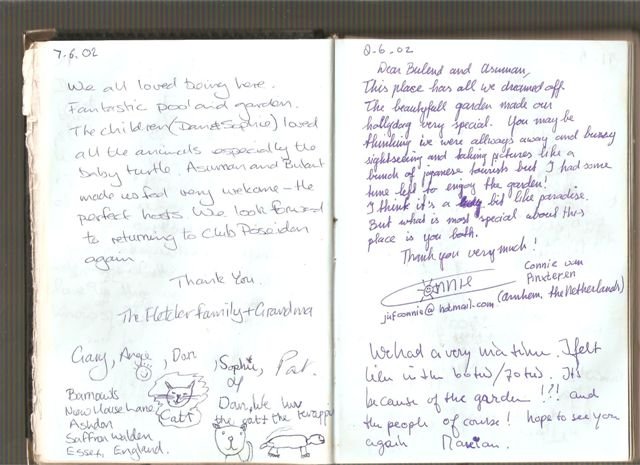 7.6.02
We all loved being here.
Fantastic pool and garden.
The children (Dan & Sophie) loved
all the animals especially the
baby turtle. Asuman and Bulent
made us feel very welcome - the
perfect hosts. We look forward
to returning to Club Poseidon
again
Thank You.
The Fletcher family + Grandma
Gary, Angie, Dan, Sophie, Pat.
Barnowts
New House Lane
Ashdon
Saffron Walden
Essex, England.
Catt
Dan, We luv
the catt the
8.6.02
Dear Bulent and Asuman,
This place has all we dreamed off.
The beautyfull garden made our
hollyday very special. You may be
thinking we were allways away and bussy
sightseeing and taking pictures like a
bunch of japanese tourists but I had some
time left to enjoy the garden!
I think it's a bit like paradise.
But what is most special about this
place is you both.
Thank you very much!
Connie
Connie van
Pinxteren
(Arnhem, the Netherlands)
jufconnie@hotmail.com
We had a very nice time. I felt
like in the 60ties/70ties. Its
because of the garden!!! and
the people of course! hope to see you
again Marian.